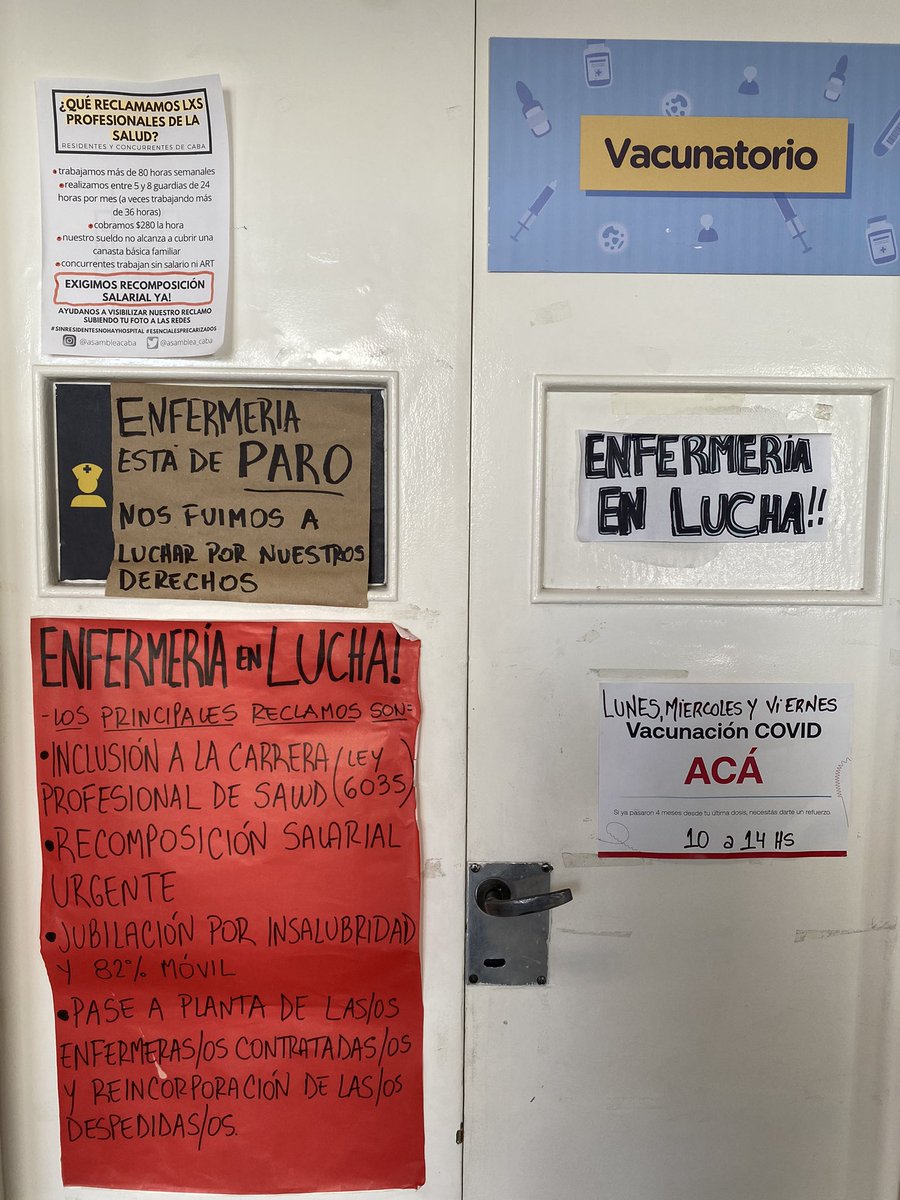 ¿QUÉ RECLAMAMOS LXS
PROFESIONALES DE LA
SALUD?
RESIDENTES Y CONCURRENTES DE CABA
• trabajamos más de 80 horas semanales
• realizamos entre 5 y 8 guardias de 24
horas por mes (a veces trabajando más
de 36 horas)
• cobramos $280 la hora
• nuestro sueldo no alcanza a cubrir una
canasta básica familiar
• concurrentes trabajan sin salario ni ART
EXIGIMOS RECOMPOSICIÓN
SALARIAL YA!
AYUDANOS A VISIBILIZAR NUESTRO RECLAMO
SUBIENDO TU FOTO A LAS REDES
#SINRESIDENTESNOHAYHOSPITAL #ESENCIALESPRECARIZADOS
@asambleacaba @asamblea_caba
ENFERMERIA
ESTÁ DE PARO
NOS FUIMOS A
LUCHAR POR NUESTROS
DERECHOS
ENFERMERÍA EN LUCHA!
- LOS PRINCIPALES RECLAMOS SON:
• INCLUSIÓN A LA CARRERA (LEY
PROFESIONAL DE SALUD (6035)
• RECOMPOSICIÓN SALARIAL
URGENTE
• JUBILACIÓN POR INSALUBRIDAD
Y 82% MÓVIL
• PASE A PLANTA DE LAS/OS
ENFERMERAS/OS CONTRATADAS/OS
Y REINCORPORACIÓN DE LAS/OS
DESPEDIDAS/OS.
Vacunatorio
ENFERMERÍA
EN LUCHA!!
LUNES, MIERCOLES Y VIERNES
Vacunación COVID
ACÁ
Si ya pasaron 4 meses desde tu última dosis, necesitás darte un refuerzo.
10 a 14 HS